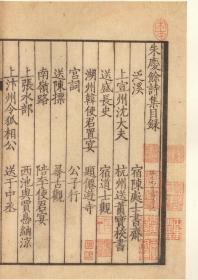 朱慶餘詩集目錄
泛溪
宿陳處士書齋
上宣州沈大夫
杭州送蕭寶校書
送盛長史
宿道士觀
湖州韓使君置宴
題僊遊寺
宮詞
公子行
送陳摽
尋古觀
南嶺路
陪李使君宴
上張水部
西池與賈島納涼
上汴州令狐相公
送丁中丞